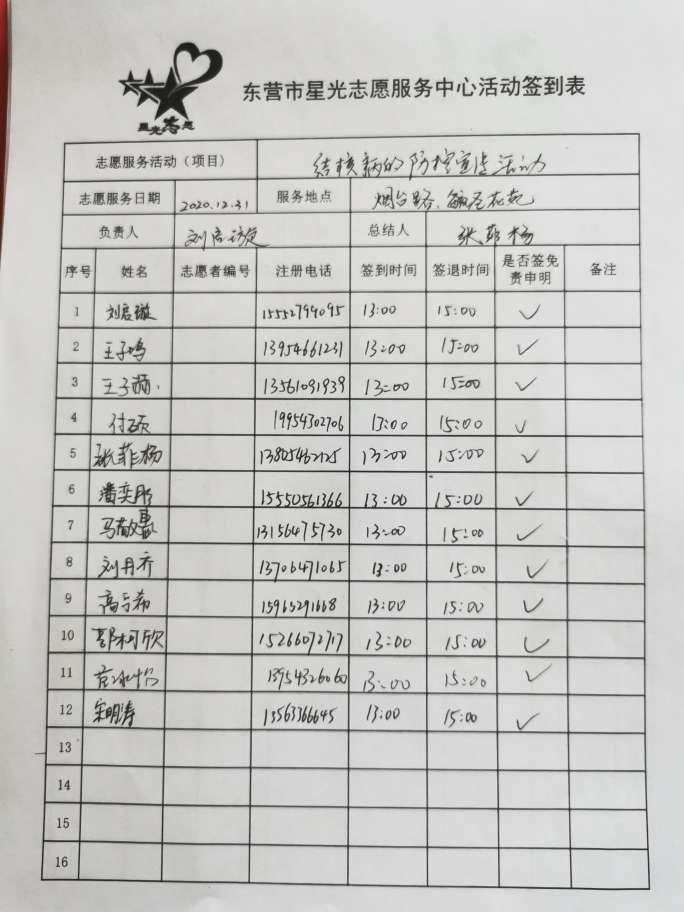 星光志愿
东营市星光志愿服务中心活动签到表
志愿服务活动（项目） 结核病的防控宣传活动
志愿服务日期 2020.12.31 服务地点 烟台路、
负责人 刘启璇 总结人 张菲杨
序号 姓名 志愿者编号 注册电话 签到时间 签退时间 是否签免责申明 备注
1 刘启璇 15552794095 13:00 15:00 ✓
2 王子鸣 13954661231 13:00 15:00 ✓
3 王子萌 13561091939 13:00 15:00 ✓
4 付硕 19954302706 13:00 15:00 ✓
5 张菲杨 13805462125 13:00 15:00 ✓
6 潘奕彤 15550561366 13:00 15:00 ✓
7 马敬惠 13156475730 13:00 15:00 ✓
8 刘丹乔 13706471065 13:00 15:00 ✓
9 高子希 15965291668 13:00 15:00 ✓
10 郭柯欣 15266072717 13:00 15:00 ✓
11 13954326060 13:00 15:00 ✓
12 宋明涛 13563366645 13:00 15:00 ✓
13
14
15
16